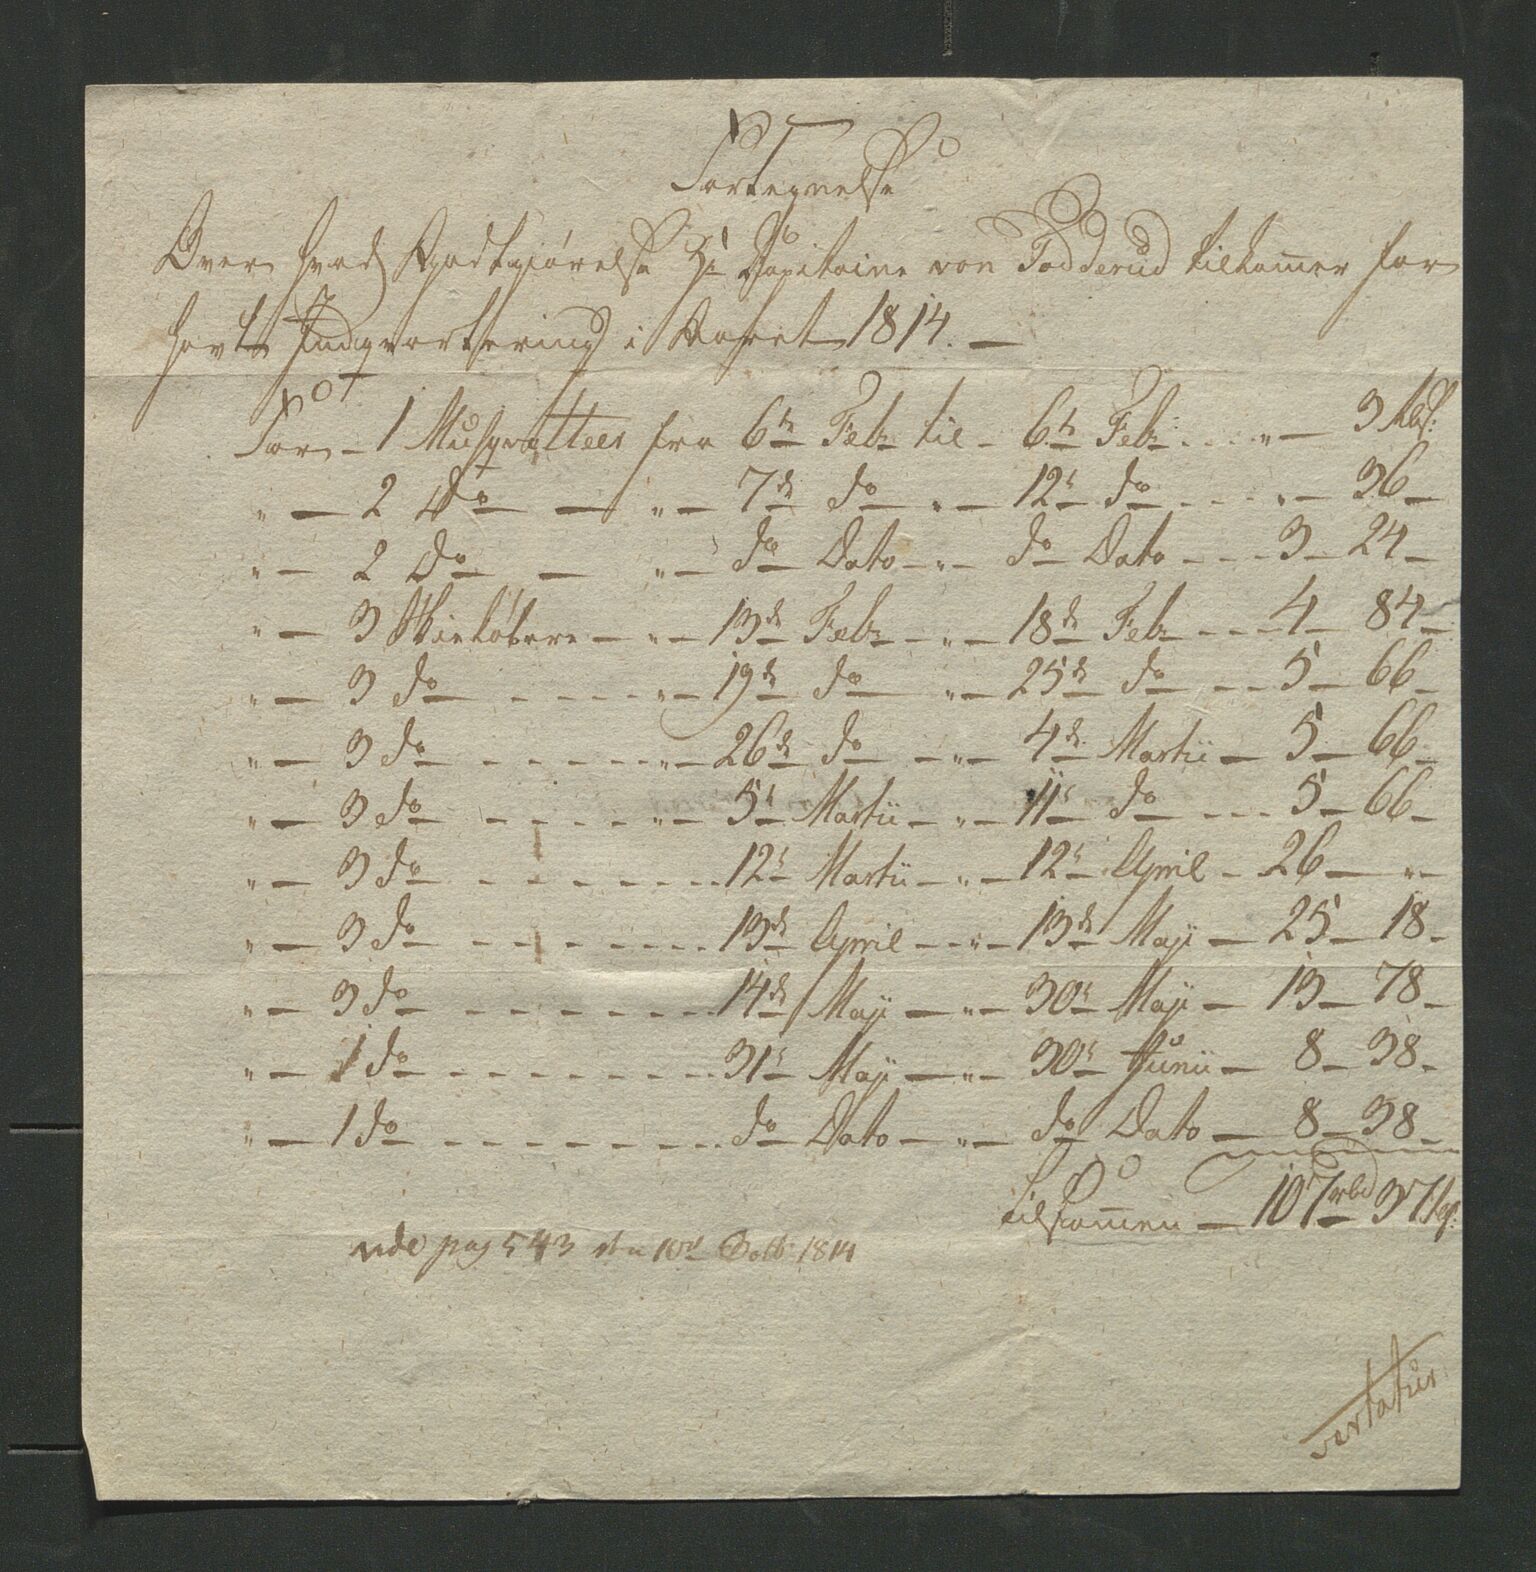 Fortegnelse
Over hvad Godtgiørelse Hr Capitaine von Todderud tilkommer for
havt Indqvartering i Aaret 1814. —
For - 1 Musqvetteer fra 6te Febr til - 6te Febr. . . . " — 3 sk:
" — 2 do — " — 7de do " — 12te do . . . " — 36 —
" — 2 do — " — do Dato — " — do Dato - - - 3 — 24 —
" — 3 Skieløbere — " — 13de Febr — " — 18de Febr - - - 4 — 84 —
" — 3 do - - - - " — 19de do " — 25de do - - - 5 — 66 —
" — 3 do - - - - - " — 26de do — " — 4de Martii — 5 — 66 —
" — 3 do - - - - - " — 5te Martii — " — 11te do - - - 5 — 66 —
" — 3 do - - - - - - - 12te Martii — " — 12te April - 26 — " —
" — 3 do - - - - - - - 13de April — " — 13de Maji — 25 — 18 —
" — 3 do - - - - - - - 14de Maji — " — 30te Maji — 13 — 78 —
" — 1 do - - - - - - - - 31te Maji — " — 30te Junii — 8 — 38 —
" — 1 do - - - - - - - - do Dato — " — do Dato — 8 — 38 —
tilsammen — 107 rbd 37 sk:
vide pag 543 den 10de Octb: 1814
vertatur